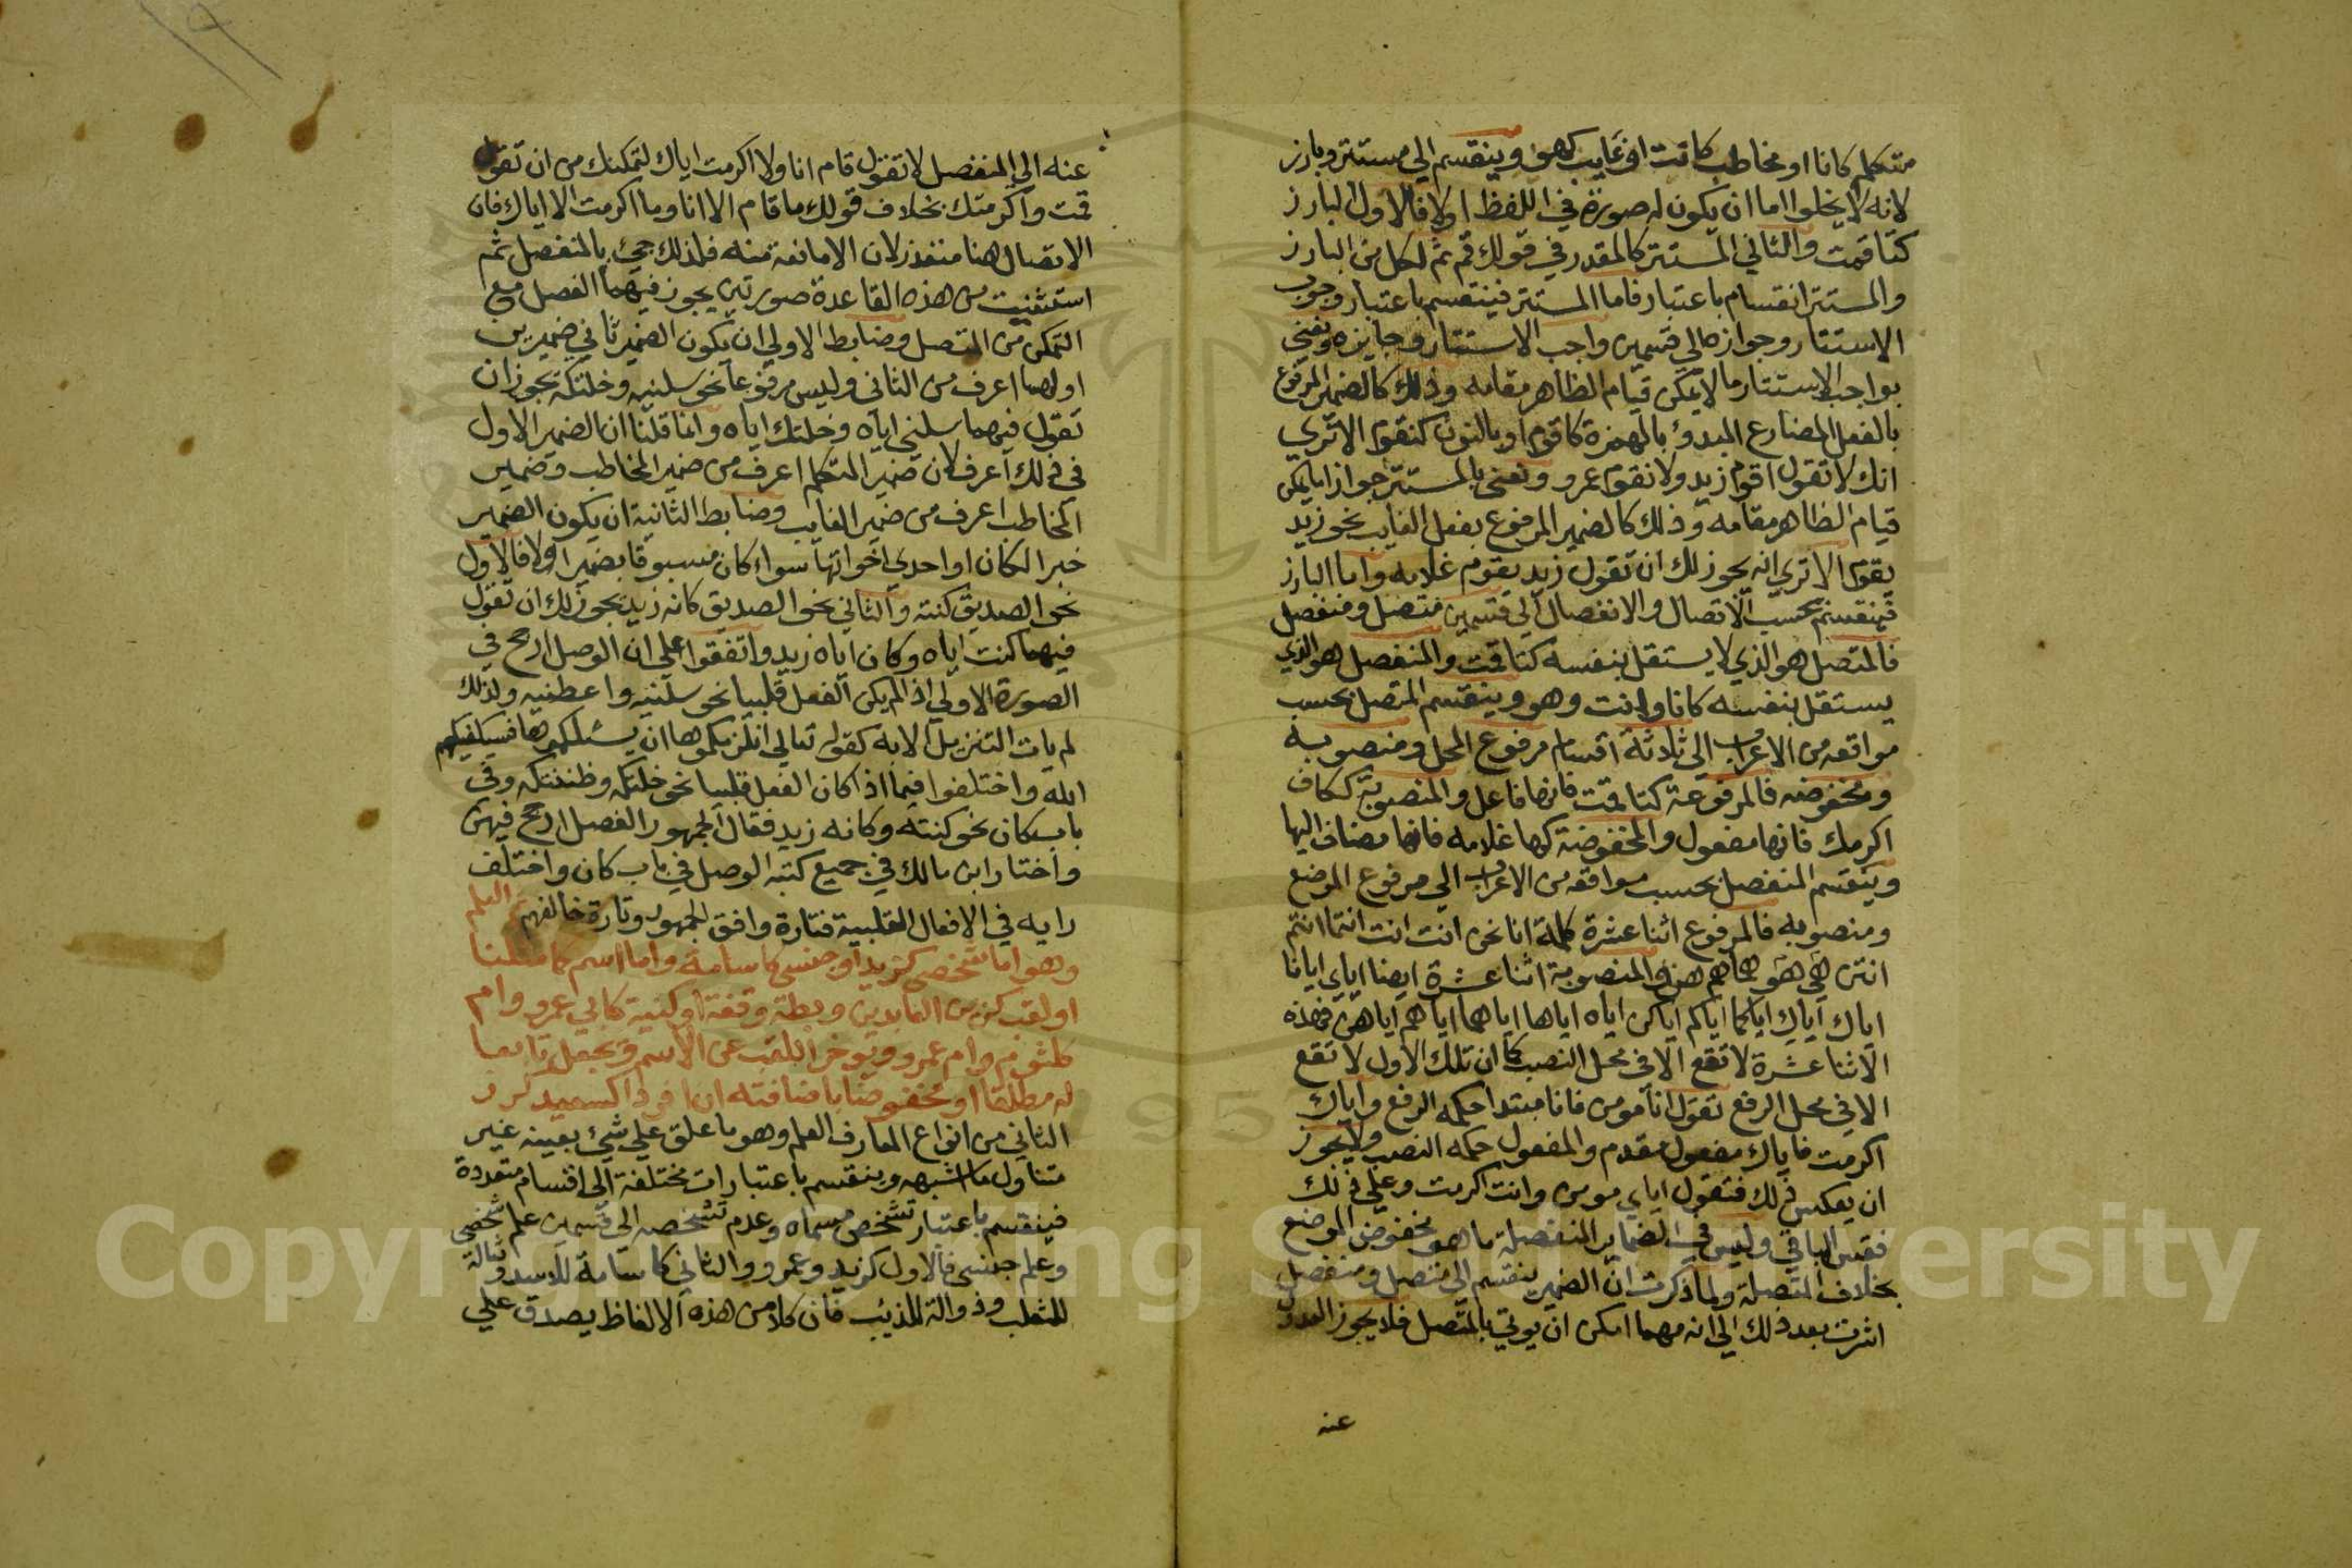 متكلم كانا او مخاطب كانت او غايب كهو وينقسم الي مستتر وبارز
لانه لا يخلوا اما ان يكون له صورة في اللفظ اولا فالاول البارز
كتا قمت والثاني المستتر كالمقدر في قولك قم ثم لكل من البارز
والمستتر انقسام باعتبار فاما المستتر فينقسم باعتبار وجوب
الاستتار وجوازه الي قسمين واجب الاستتار وجايزه ونعني
بواجب الاستتار ما لا يمكن قيام الظاهر مقامه وذلك كالضمير المرفوع
بالفعل المضارع المبدؤ بالهمزة كاقوم او بالنون كنقوم الا تري
انك لا تقول اقوم زيد ولا نقوم عمرو ونعني بالمستتر جوازا ما يمكن
قيام الظاهر مقامه وذلك كالضمير المرفوع بفعل الغايب نحو زيد
يقوم الا تري انه يجوز لك ان تقول زيد يقوم غلامه واما البارز
فينقسم بحسب الاتصال والانفصال الي قسمين متصل ومنفصل
فالمتصل هو الذي لا يستقل بنفسه كتا قمت والمنفصل هو الذي
يستقل بنفسه كانا وانت وهو وينقسم المتصل بحسب
مواقعه من الاعراب الي ثلاثة اقسام مرفوع المحل ومنصوبه
ومخفوضه فالمرفوعة كتا قمت فانها فاعل والمنصوبة ككاف
اكرمك فانها مفعول والمخفوضة كها غلامه فانها مضاف اليها
وينقسم المنفصل بحسب مواقعه من الاعراب الي مرفوع الموضع
ومنصوبه فالمرفوع اثنا عشرة كلمة انا نحن انت انت انتما انتم
انتن هو هي هما هم هن والمنصوبة اثنا عشرة ايضا اياي ايانا
اياك اياك اياكما اياكم اياكن اياه اياها اياهما اياهم اياهن فهذه
الاثنا عشرة لا تقع الا في محل النصب كما ان تلك الاول لا تقع
الا في محل الرفع تقول انا مومن فانا مبتدا حكمه الرفع واياك
اكرمت فاياك مفعول مقدم والمفعول حكمه النصب ولا يجوز
ان يعكس ذلك فتقول اياي مومن وانت اكرمت وعلي ذلك
فقس الباقي وليس في الضماير المنفصلة ما هو مخفوض الموضع
بخلاف المتصلة ولما ذكرت ان الضمير ينقسم الي متصل ومنفصل
اشرت بعد ذلك الي انه مهما امكن ان يوتي بالمتصل فلا يجوز العدو
عنه
١٩
عنه الي المنفصل لا تقول قام انا ولا اكرمت اياك لتمكنك من ان تقول
قمت واكرمتك بخلاف قولك ما قام الا انا وما اكرمت الا اياك فان
الاتصال هنا متعذر لان الا مانعة منه فلذلك جئ بالمنفصل ثم
استثنيت من هذه القاعدة صورتين يجوز فيهما الفصل مع
التمكن من المتصل وضابط الاولي ان يكون الضمير ثاني ضميرين
اولهما اعرف من الثاني وليس مرفوعا نحو سلنيه وخلتكه يجوز ان
تقول فيهما سلني اياه وخلتك اياه وانما قلنا ان الضمير الاول
في ذلك اعرف لان ضمير المتكلم اعرف من ضمير المخاطب وضمير
المخاطب اعرف من ضمير الغايب وضابط الثانية ان يكون الضمير
خبرا لكان او احدي اخواتها سواء كان مسبوقا بضمير اولا فالاول
نحو الصديق كنته والثاني نحو الصديق كانه زيد يجوز لك ان تقول
فيهما كنت اياه وكان اياه زيد واتفقوا علي ان الوصل ارجح في
الصورة الاولي اذا لم يكن الفعل قلبيا نحو سلنيه واعطنيه ولذلك
لم يات التنزيل الا به كقوله تعالي انلزمكموها ان يسئلكموها فسيكفيكهم
الله واختلفوا فيما اذا كان الفعل قلبيا نحو خلتكه وظننتكه وفي
باب كان نحو كنته وكانه زيد فقال الجمهور الفصل ارجح فيهن
واختار ابن مالك في جميع كتبه الوصل في باب كان واختلف
رايه في الافعال القلبية فتارة وافق الجمهور وتارة خالفهم ثم العلم
وهو اما شخصي كزيد او جنسي كاسامة واما اسم كما مثلنا
او لقب كزين العابدين وبطة وقفة او كنية كابي عمرو وام
كلثوم وام عمرو ويوخر اللقب عن الاسم ويجعل تابعا
له مطلقا او مخفوضا باضافته ان افردا كسعيد كرز
الثاني من انواع المعارف العلم وهو ما علق علي شئ بعينه غير
متناول ما اشبهه وينقسم باعتبارات مختلفة الي اقسام متعددة
فينقسم باعتبار تشخص مسماه وعدم تشخصه الي قسمين علم شخصي
وعلم جنسي فالاول كزيد وعمرو والثاني كاسامة للاسد وثعالة
للثعلب وذوالة للذيب فان كلا من هذه الالفاظ يصدق علي
Copyright © King Saud University